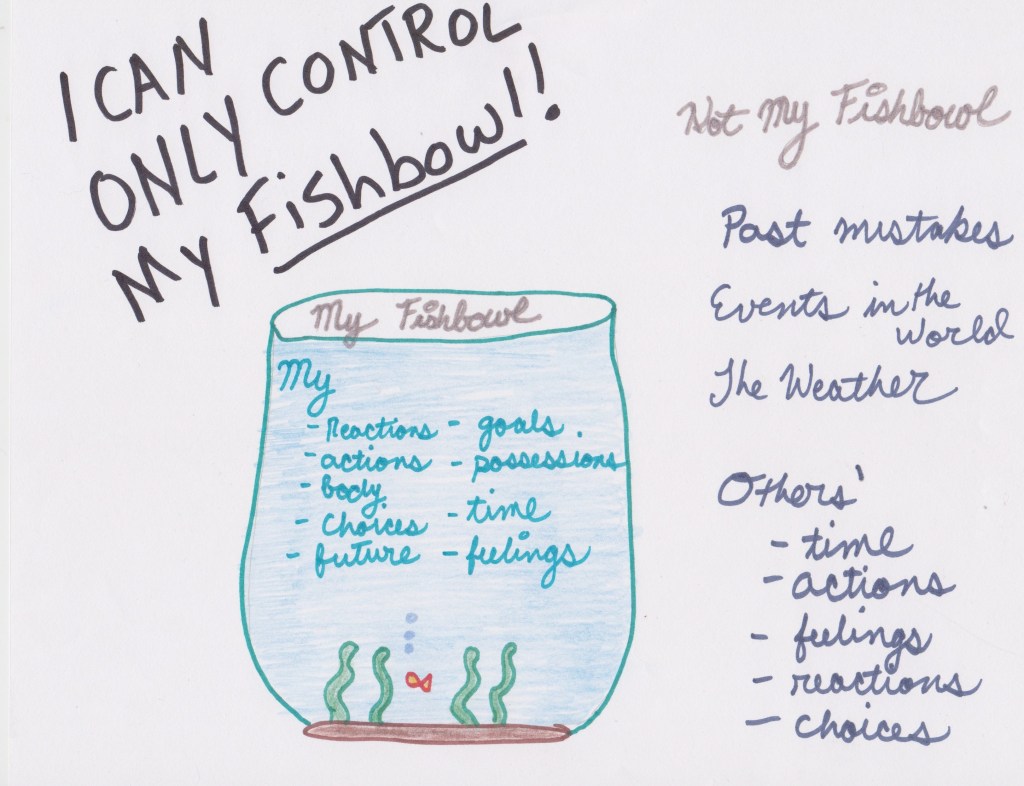 I CAN
ONLY CONTROL
MY Fishbowl!
Not My Fishbowl
Past mistakes
Events in the
World
The Weather
Others'
- time
- actions
- feelings
- reactions
- choices
My Fishbowl
My
- reactions - goals.
- actions - possessions
- body
- choices - time
- future - feelings